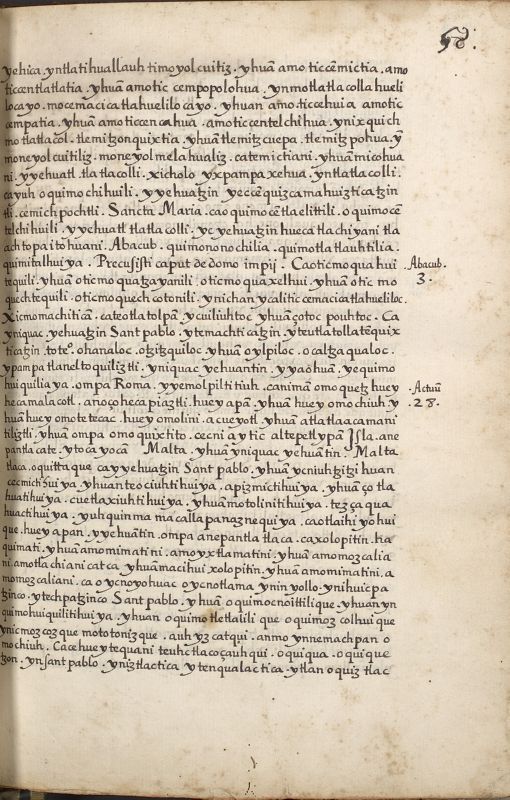 58.
yehica . yntlatihuallauh timoyolcuitiz . yhuā amo ticcēmictia . amo
ticcentlatlatia . yhuā amotic cempopolohua . ynmotlatlacolla hueli
locayo . mocemacicatlahuelilocayo . yhuan amo ticcehuia amotic
cempatia . yhuā amoticcencahuā . amoticcentelchihua . ynixquich
motlatlacol . tlemitzonquixtia . yhuā tlemitzcuepa . tlemitzpohua . ȳ
moneyolcuitiliz . moneyolmelahualiz . catemictiani . yhuā micohua
ni . yyehuatl tlatlacolli . xicholo yxpampaxehua . yntlatlacolli .
cayuh oquimochihuili . yyehuatzin yeccēquizcamahuiztica tzin
tli . cemichpochtli . Sancta Maria . caoquimocētlaelittili . oquimocē
telchihuili . yyehuatl tlatlacolli . yc yehuatzin huecatlachiyani tla
achtopaitohuani . Abacub . quimononochilia . quimotlatlauhtilia .
quimitalhuiya . Precusisti caput de domo impij . Caoticmoquahui
.Abacub.
3.
tequili . yhuā oticmoquatzayanili . oticmoquaxelhui . yhuā otic mo
quechtequili . oticmoquechcotonili . ynichan ycalitic cemacicatlahueliloc .
Xicmomachiticā . cateotlatolpā ycuiliuhtoc yhuā çotoc pouhtoc . Ca
yniquac yehuatzin Sant pablo . ytemachticatzin yteutlatollatēquix
ticatzin toteº . ohanaloc . otzitzquiloc yhuā oylpiloc . ocaltzaqualoc .
ypampa tlaneltoquiliztli . yniquac yehuantin . yyaohuā . yequimo
huiquiliaya . ompa Roma . yyemolpiltituih . canimā omoquetz huey
.Actuū
.28.
hecamalacotl . anoço hecapiaztli . huey apā . yhuā huey omochiuh y
huā huey omotetecac . huey omolini . acueyotl yhuā atlatlaacamani
tiliztli . yhuā ompa omoquixtito . cecni aytic altepetlypā Isla . ane
pantlacate . ytocayocā Malta . yhuā yniquac yehuātin Malta
tlaca . oquittaque cayyehuatzin Sant pablo . yhuā ycniuhtzitzihuan
cecmichuiya . yhuanteociuhtihuiya . apizmictihuiya . yhuā çotla
huatihuiya . cuetlaxiuhtihuiya . yhuā motolinitihuiya . tezçaqua
huactihuiya . yuhquinma macallapanaznequiya . caotlaihiyohui
que . hueyapan . yyehuātin . ompa anepantlatlaca . caxolopitin . ha
quimati . yhuā amomimatini . amoyxtlamatini . yhuā amomozcalia
ni . amotlachianicatca . yhuā macihui xolopitin . yhuā amomimatini . a
momozcaliani . ca oycnoyohuac oycnotlama yninyollo . ynihuicpa
tzinco . ytechpatzinco Sant pablo . yhuā oquimocnoittilique . yhuan yn
quimohuiquilitihuiya . yhuan oquimotletlalili que oquimozcolhuique
ynicmozcozque mototonizque . auh yzcatqui . anmo ynnemachpan o
mochiuh . Cacē huey tequani teuhctlacoçauhqui . oquiqua . oquique
tzon . ynsant pablo . yniztlactica ytenqualactica . ytlan oquiztlac